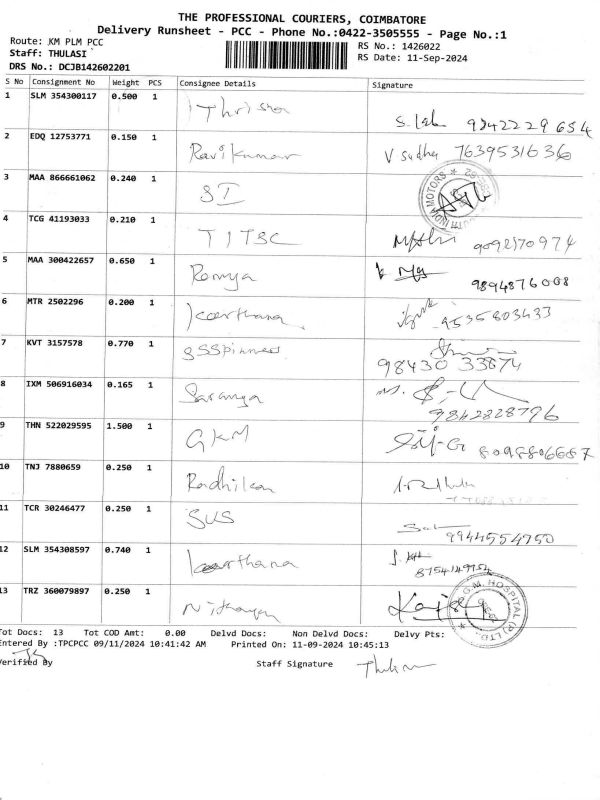 THE PROFESSIONAL COURIERS, COIMBATORE
Delivery Runsheet - PCC - Phone No.:0422-3505555 - Page No.:1
Route: KM PLM PCC
RS No.: 1426022
Staff: THULASI
RS Date: 11-Sep-2024
DRS No.: DCJB142602201
S No Consignment No Weight PCS Consignee Details Signature
1 SLM 354300117 0.500 1 Thrisha 9942229654
2 EDQ 12753771 0.150 1 Ravikumar V Sudha 7639531636
3 MAA 866661062 0.240 1 SI
SOUTH INDIA MOTORS
4 TCG 41193033 0.210 1 TITSC 9092170974
5 MAA 300422657 0.650 1 Remya 9894876008
6 MTR 2502296 0.200 1 Keerthana 9535803433
7 KVT 3157578 0.770 1 SSSpinners 98430 33674
8 IXM 506916034 0.165 1 Saranya 9842828796
9 THN 522029595 1.500 1 GKM 8098806687
10 TNJ 7880659 0.250 1 Radhika
11 TCR 30246477 0.250 1 SUS 9944554750
12 SLM 354308597 0.740 1 keerthana 8754149754
13 TRZ 360079897 0.250 1
G.M. HOSPITAL (P) LTD.
Tot Docs: 13 Tot COD Amt: 0.00 Delvd Docs: Non Delvd Docs: Delvy Pts:
Entered By :TPCPCC 09/11/2024 10:41:42 AM Printed On: 11-09-2024 10:45:13
Verified By Staff Signature